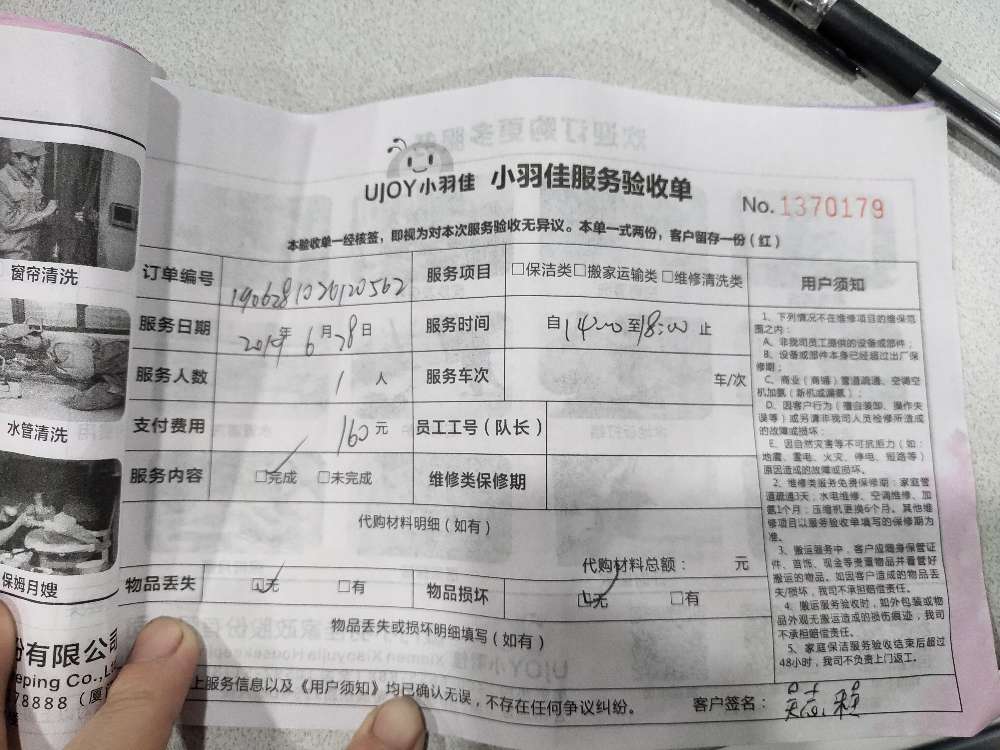 窗帘清洗
水管清洗
保姆月嫂
份有限公司
eping Co.,L
78888（厦
UJOY小羽佳 小羽佳服务验收单
No.1370179
本验收单一经核签，即视为对本次服务验收无异议。本单一式两份，客户留存一份（红）
订单编号 1906281020120562 服务项目 □保洁类□搬家运输类□维修清洗类
服务日期 2019年6月28日 服务时间 自14:00至18:00止
服务人数 1人 服务车次 车/次
支付费用 160元 员工工号（队长）
服务内容 □完成 □未完成 维修类保修期
代购材料明细（如有）
代购材料总额： 元
物品丢失 □无 □有 物品损坏 □无 □有
物品丢失或损坏明细填写（如有）
上服务信息以及《用户须知》均已确认无误，不存在任何争议纠纷。 客户签名：
用户须知
1、下列情况不在维修项目的维保范
围之内：
A、非我司员工提供的设备或部件；
B、设备或部件本身已经超过出厂保
修期；
C、商业（商铺）管道疏通、空调空
机加氨（新机或漏氨）；
D、因客户行为（擅自装卸、操作失
误等）或另请非我司人员检修所造成
的故障或损坏；
E、因自然灾害等不可抗拒力（如：
地震、雷电、火灾、停电、短路等）
原因造成的故障或损坏。
2、维修类服务免费保修期：家庭管
道疏通3天，水电维修、空调维修、加
氨1个月；压缩机更换6个月。其他维
修项目以服务验收单填写的保修期为
准。
3、搬运服务中，客户应随身保管证
件、首饰、现金等贵重物品并看管好
搬运的物品。如因客户造成的物品丢
失/损坏，我司不承担赔偿责任。
4、搬运服务验收时，如外包装或物
品外观无搬运造成的损伤痕迹，我司
不承担赔偿责任。
5、家庭保洁服务验收结束后超过
48小时，我司不负责上门返工。